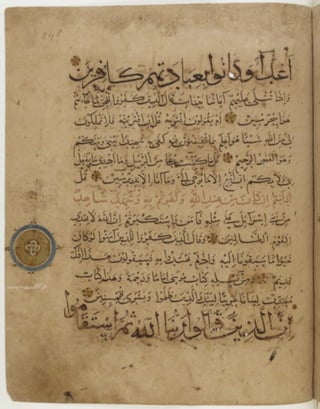 أعداء وكانوا بعبادتهم كافرين
وإذا تتلى عليهم آياتنا بينات قال الذين كفروا للحق لما جاءهم
هذا سحر مبين أم يقولون افتراه قل إن افتريته فلا تملكون
لي من الله شيئا هو أعلم بما تفيضون فيه كفى به شهيدا بيني وبينكم
وهو الغفور الرحيم قل ما كنت بدعا من الرسل وما أدري ما يفعل
بي ولا بكم إن أتبع إلا ما يوحى إلي وما أنا إلا نذير مبين قل
أرأيتم إن كان من عند الله وكفرتم به وشهد شاهد
من بني إسرائيل على مثله فآمن واستكبرتم إن الله لا يهدي
القوم الظالمين وقال الذين كفروا للذين آمنوا لو كان
خيرا ما سبقونا إليه وإذ لم يهتدوا به فسيقولون هذا إفك
قديم ومن قبله كتاب موسى إماما ورحمة وهذا كتاب
مصدق لسانا عربيا لينذر الذين ظلموا وبشرى للمحسنين
إن الذين قالوا ربنا الله ثم استقاموا